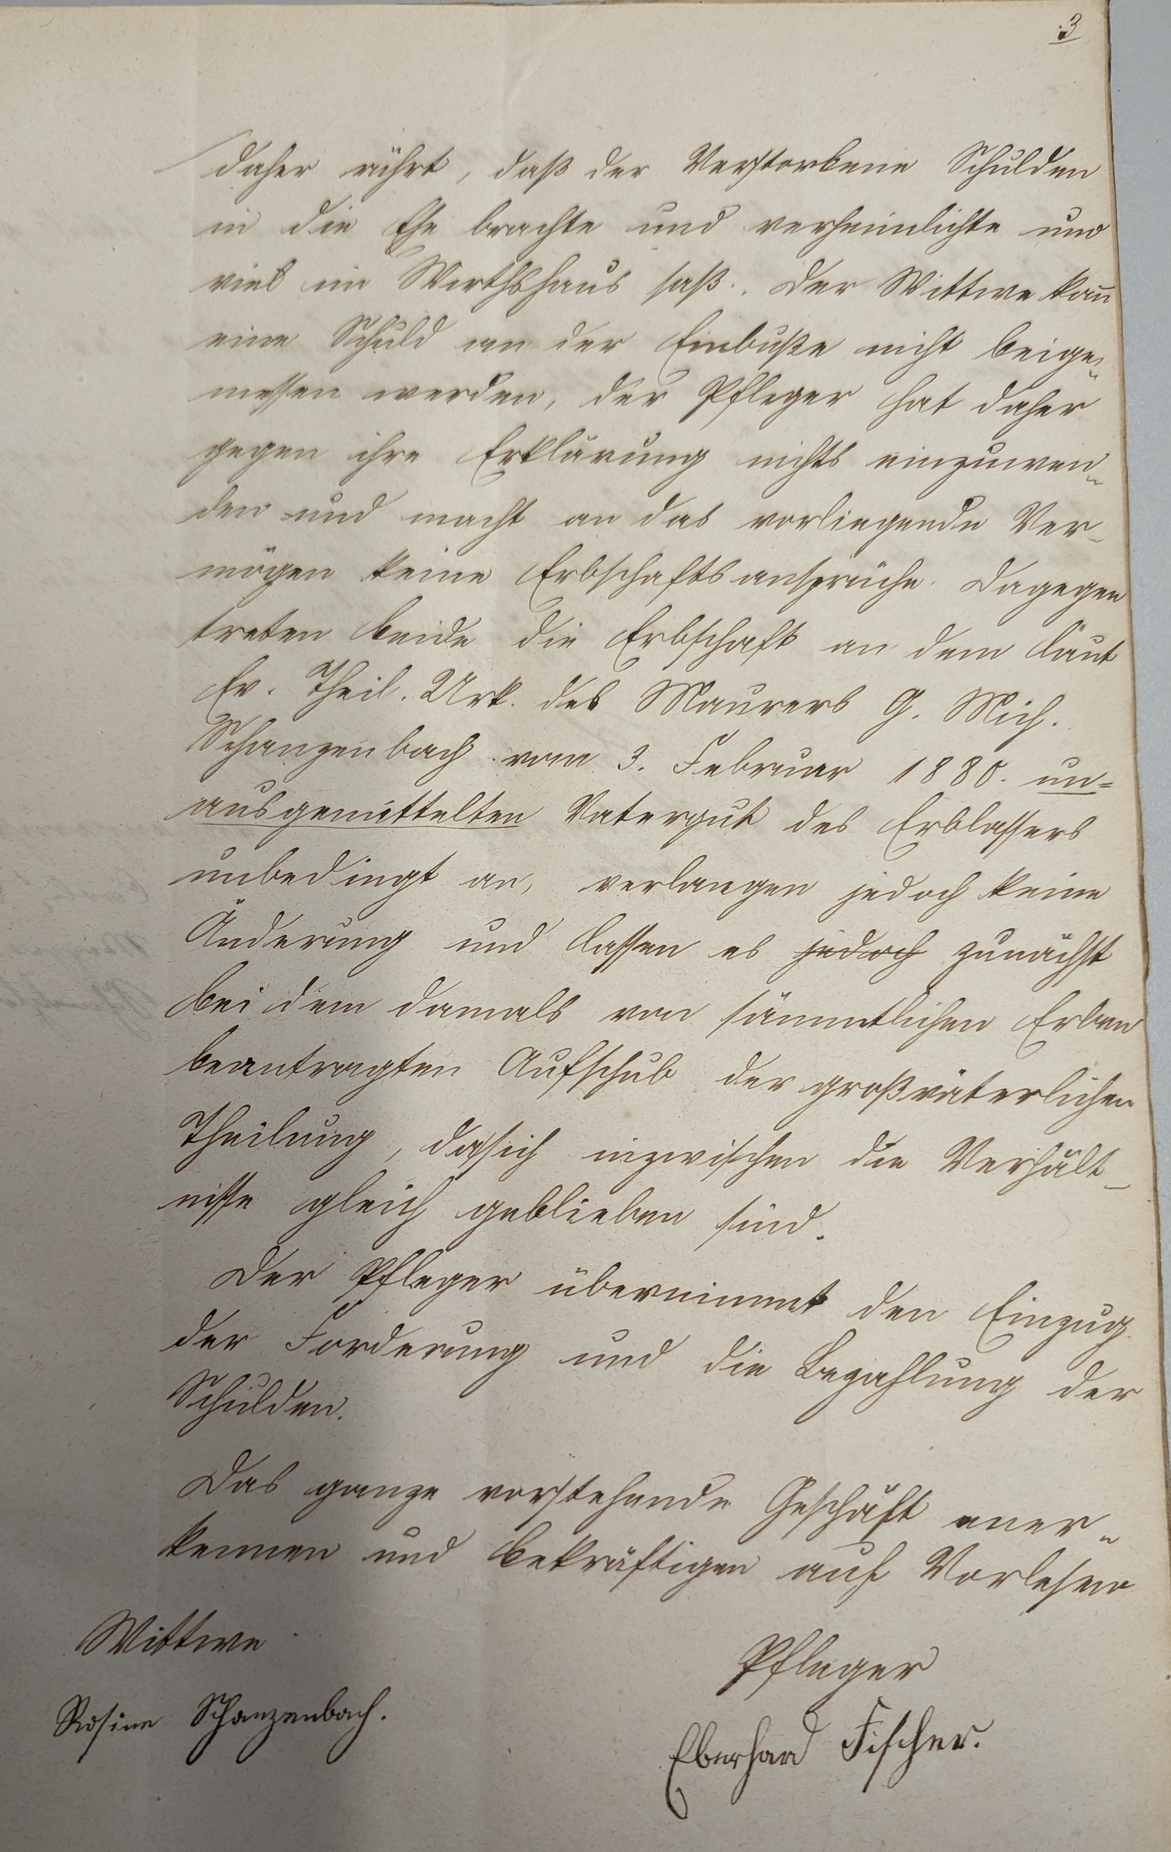 3
daher rührt, daß der Verstorbene Schulden
in die Ehe brachte und verheimlichte und
viel im Wirthshaus saß. Der Wittwe kañ
eine Schuld an der Einbuße nicht beige-
messen werden, der Pfleger hat daher
gegen ihre Erklärung nichts einzuwen-
den und macht an das vorliegende Ver-
mögen keine Erbschaftsansprüche. Dagegen
treten beide die Erbschaft an dem laut
Ev. Theil. Urk. des Maurers G. Mich.
Schanzenbach vom 3. Februar 1880. un=
ausgemittelten Vatergut des Erblassers
unbedingt an, verlangen jedoch keine
Änderung und lassen es jedoch zunächst
bei dem damals von sämmtlichen Erben
beantragten Aufschub der großväterlichen
Theilung, da sich inzwischen die Verhält-
nisse gleich geblieben sind.
Der Pfleger übernimmt den Einzug
der Forderung und die Bezahlung der
Schulden.
Das ganze vorstehende Geschäft aner-
kennen und bekräftigen auf Vorlesen
Wittwe
Pfleger
Rosine Schanzenbach.
Eberhard Fischer.